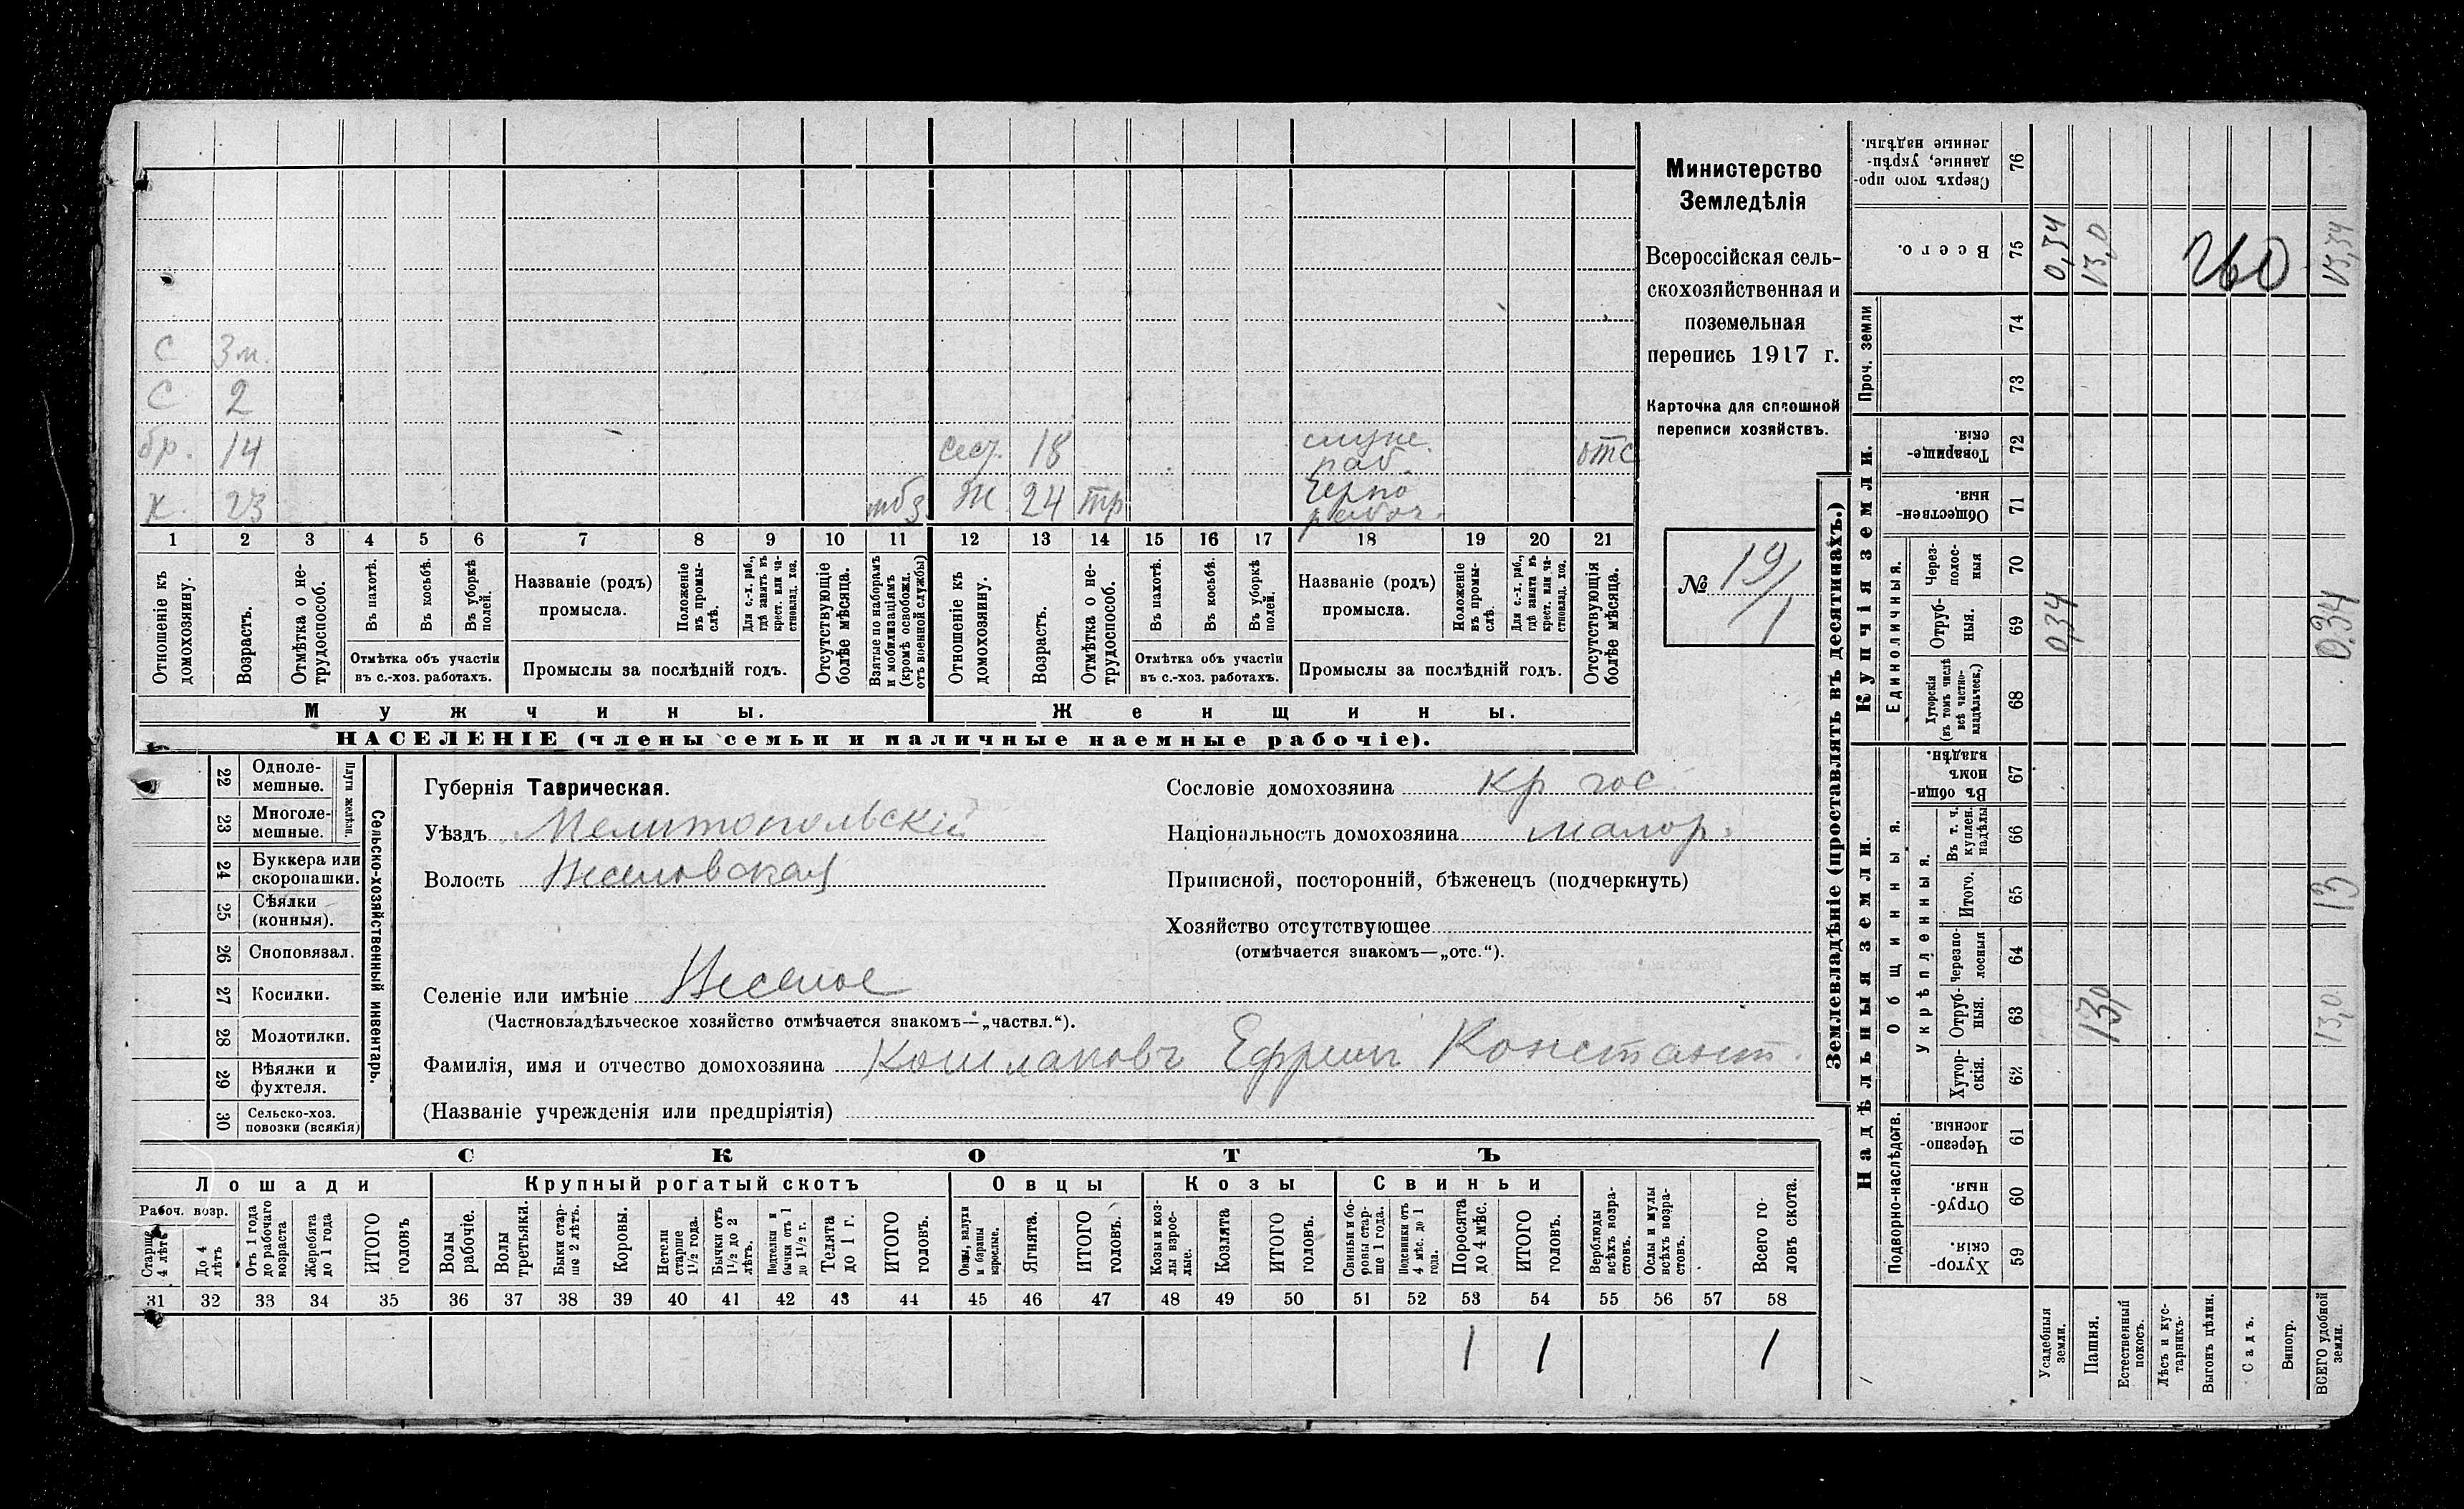 С 3 м.
С 2
бр. 14 сест. 18 отс
раб.
Х. 23 мбз. Ж 24 тр черно
рабоч.
1 2 3 4 5 6 7 8 9 10 11 12 13 14 15 16 17 18 19 20 21
Отношеніе къ домохозяину.
Возрастъ.
Отмѣтка о нетрудоспособ.
Въ пахотѣ.
Въ косьбѣ.
Въ уборкѣ полей.
Отмѣтка объ участіи
въ с.-хоз. работахъ.
Названіе (родъ)
промысла.
Положеніе въ промыслѣ.
Для с.-х. раб., гдѣ занятъ въ крест. или частновлад. хоз.
Промыслы за послѣдній годъ.
Отсутствующіе болѣе мѣсяца.
Взятые по наборамъ и мобилизаціямъ (кромѣ освобожд. отъ военной службы)
Отношеніе къ домохозяину.
Возрастъ.
Отмѣтка о нетрудоспособ.
Въ пахотѣ.
Въ косьбѣ.
Въ уборкѣ полей.
Отмѣтка объ участіи
въ с.-хоз. работахъ.
Названіе (родъ)
промысла.
Положеніе въ промыслѣ.
Для с.-х. раб., гдѣ занята въ крест. или частновлад. хоз.
Промыслы за послѣдній годъ.
Отсутствующія болѣе мѣсяца.
Мужчины. Женщины.
НАСЕЛЕНІЕ (члены семьи и наличные наемные рабочіе).
Министерство
Земледѣлія
Всероссійская сель-
скохозяйственная и
поземельная
перепись 1917 г.
Карточка для сплошной
переписи хозяйствъ.
№ 19/1
Сельско-хозяйственный инвентарь.
Плуги желѣзн.
22 Однолемешные.
23 Многолемешные.
24 Буккера или скоропашки.
25 Сѣялки (конныя).
26 Сноповязал.
27 Косилки.
28 Молотилки.
29 Вѣялки и фухтеля.
30 Сельско-хоз. повозки (всякія)
Губернія Таврическая.
Уѣздъ Мелитопольскій
Волость Веселовская
Селеніе или имѣніе Веселое
(Частновладѣльческое хозяйство отмѣчается знакомъ—„частвл.“).
Фамилія, имя и отчество домохозяина Кошлаковъ Ефримъ Констант.
(Названіе учрежденія или предпріятія)
Сословіе домохозяина кр гос
Національность домохозяина малор.
Приписной, посторонній, бѣженецъ (подчеркнуть)
Хозяйство отсутствующее
(отмѣчается знакомъ—„отс.“).
СКОТЪ
Лошади Крупный рогатый скотъ Овцы Козы Свиньи
Рабоч. возр.
Старше 4 лѣтъ
До 4 лѣтъ
Отъ 1 года до рабочаго возраста
Жеребята до 1 года
ИТОГО головъ
Волы рабочіе.
Волы третьяки.
Быки старше 2 лѣтъ.
Коровы.
Нетели старше 1½ года.
Бычки отъ 1½ до 2 лѣтъ.
Подтелки и бычки отъ 1 до 1½ г.
Телята до 1 г.
ИТОГО головъ.
Овцы, валухи и бараны взрослые.
Ягнята.
ИТОГО головъ.
Козы и козлы взрослые.
Козлята
ИТОГО головъ.
Свиньи и боровы старше 1 года.
Подсвинки отъ 4 мѣс. до 1 года.
Поросята до 4 мѣс.
ИТОГО головъ.
Верблюды всѣхъ возрастовъ.
Ослы и мулы всѣхъ возрастовъ.
Всего головъ скота.
31 32 33 34 35 36 37 38 39 40 41 42 43 44 45 46 47 48 49 50 51 52 53 54 55 56 57 58
1 1 1
Землевладѣніе (проставлять въ десятинахъ.)
Надѣльныя земли. Купчія земли. Проч. земли
Подворно-наслѣдств.
Общинныя.
Укрѣпленныя.
Единоличныя.
Сверхъ того проданные, укрѣпленные надѣлы. 76
Всего. 75 0,34 13,0 260 13,34
74
73
Товарищескія. 72
Общественныя. 71
Черезполосныя 70
Отрубныя. 69 0,34 0.34
Хуторскія (въ томъ числѣ всѣ частновладѣльческ.) 68
Въ общинномъ владѣн. 67
Въ т. ч. куплен. надѣлы 66
Итого. 65 13
Черезполосныя 64
Отрубныя. 63 13,0 13,0
Хуторскія. 62
Черезполосныя. 61
Отрубныя. 60
Хуторскія. 59
Усадебныя земли.
Пашня.
Естественный покосъ.
Лѣсъ и кустарникъ.
Выгонъ цѣлин.
Садъ.
Виногр.
ВСЕГО удобной земли.